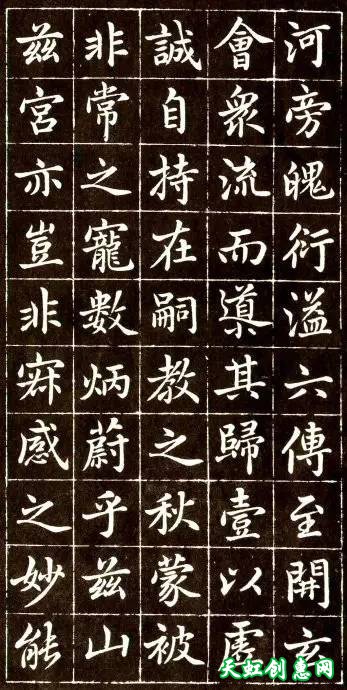 河旁魄衍溢六傳至開玄
會眾流而導其歸壹以虛
誠自持在嗣教之秋蒙被
非常之寵數炳蔚乎茲山
茲宮亦豈非寂感之妙能
天虹创意网